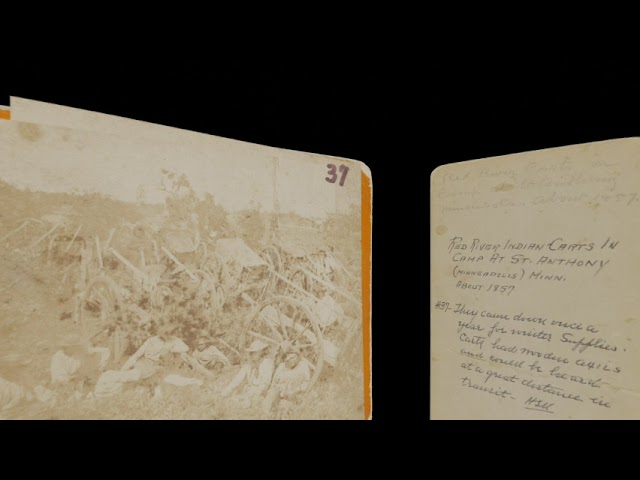 37
Red River
Camp
about 1857
RED RIVER INDIAN CARTS IN
CAMP AT ST. ANTHONY
(MINNEAPOLIS) MINN.
ABOUT 1857
#37- They came down once a
year for winter Supplies.
Carts had wooden axles
and could be heard
at a great distance in
transit.